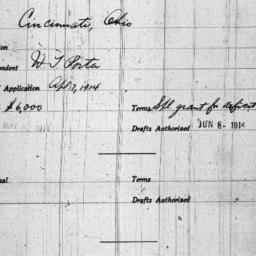 Cincinnati, Ohio
on
ondent W T Porter
Application Apl 7, 1914
$6,000 Terms Spl. grant for deficit
MAY 1914 Drafts Authorised JUN 8 - 1914
al Terms
Drafts Authorised